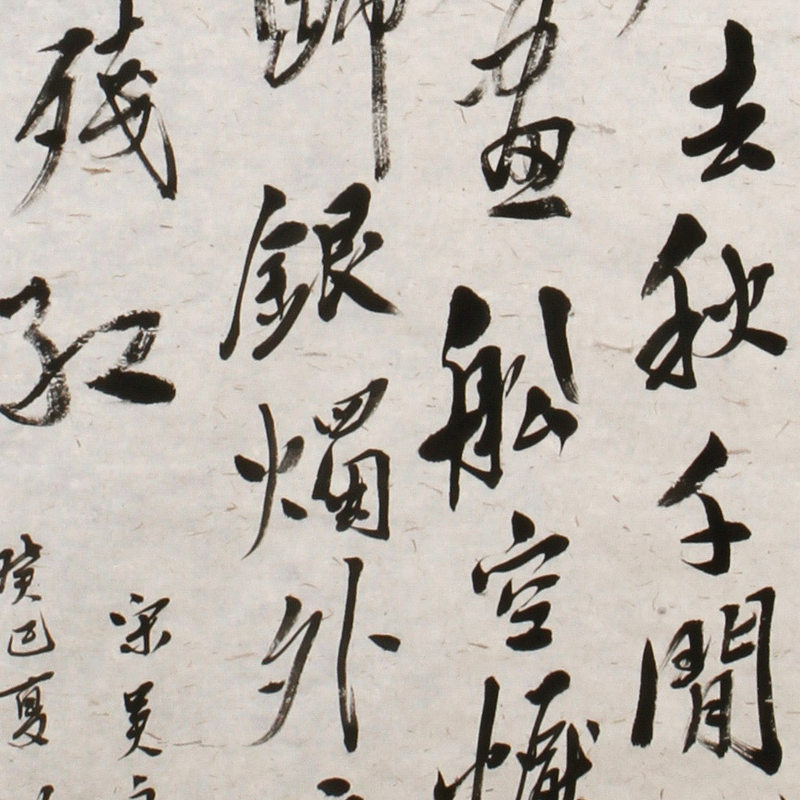 去秋千閒
畫船空懨
歸銀燭外
殘紅
宋吴
癸巳夏